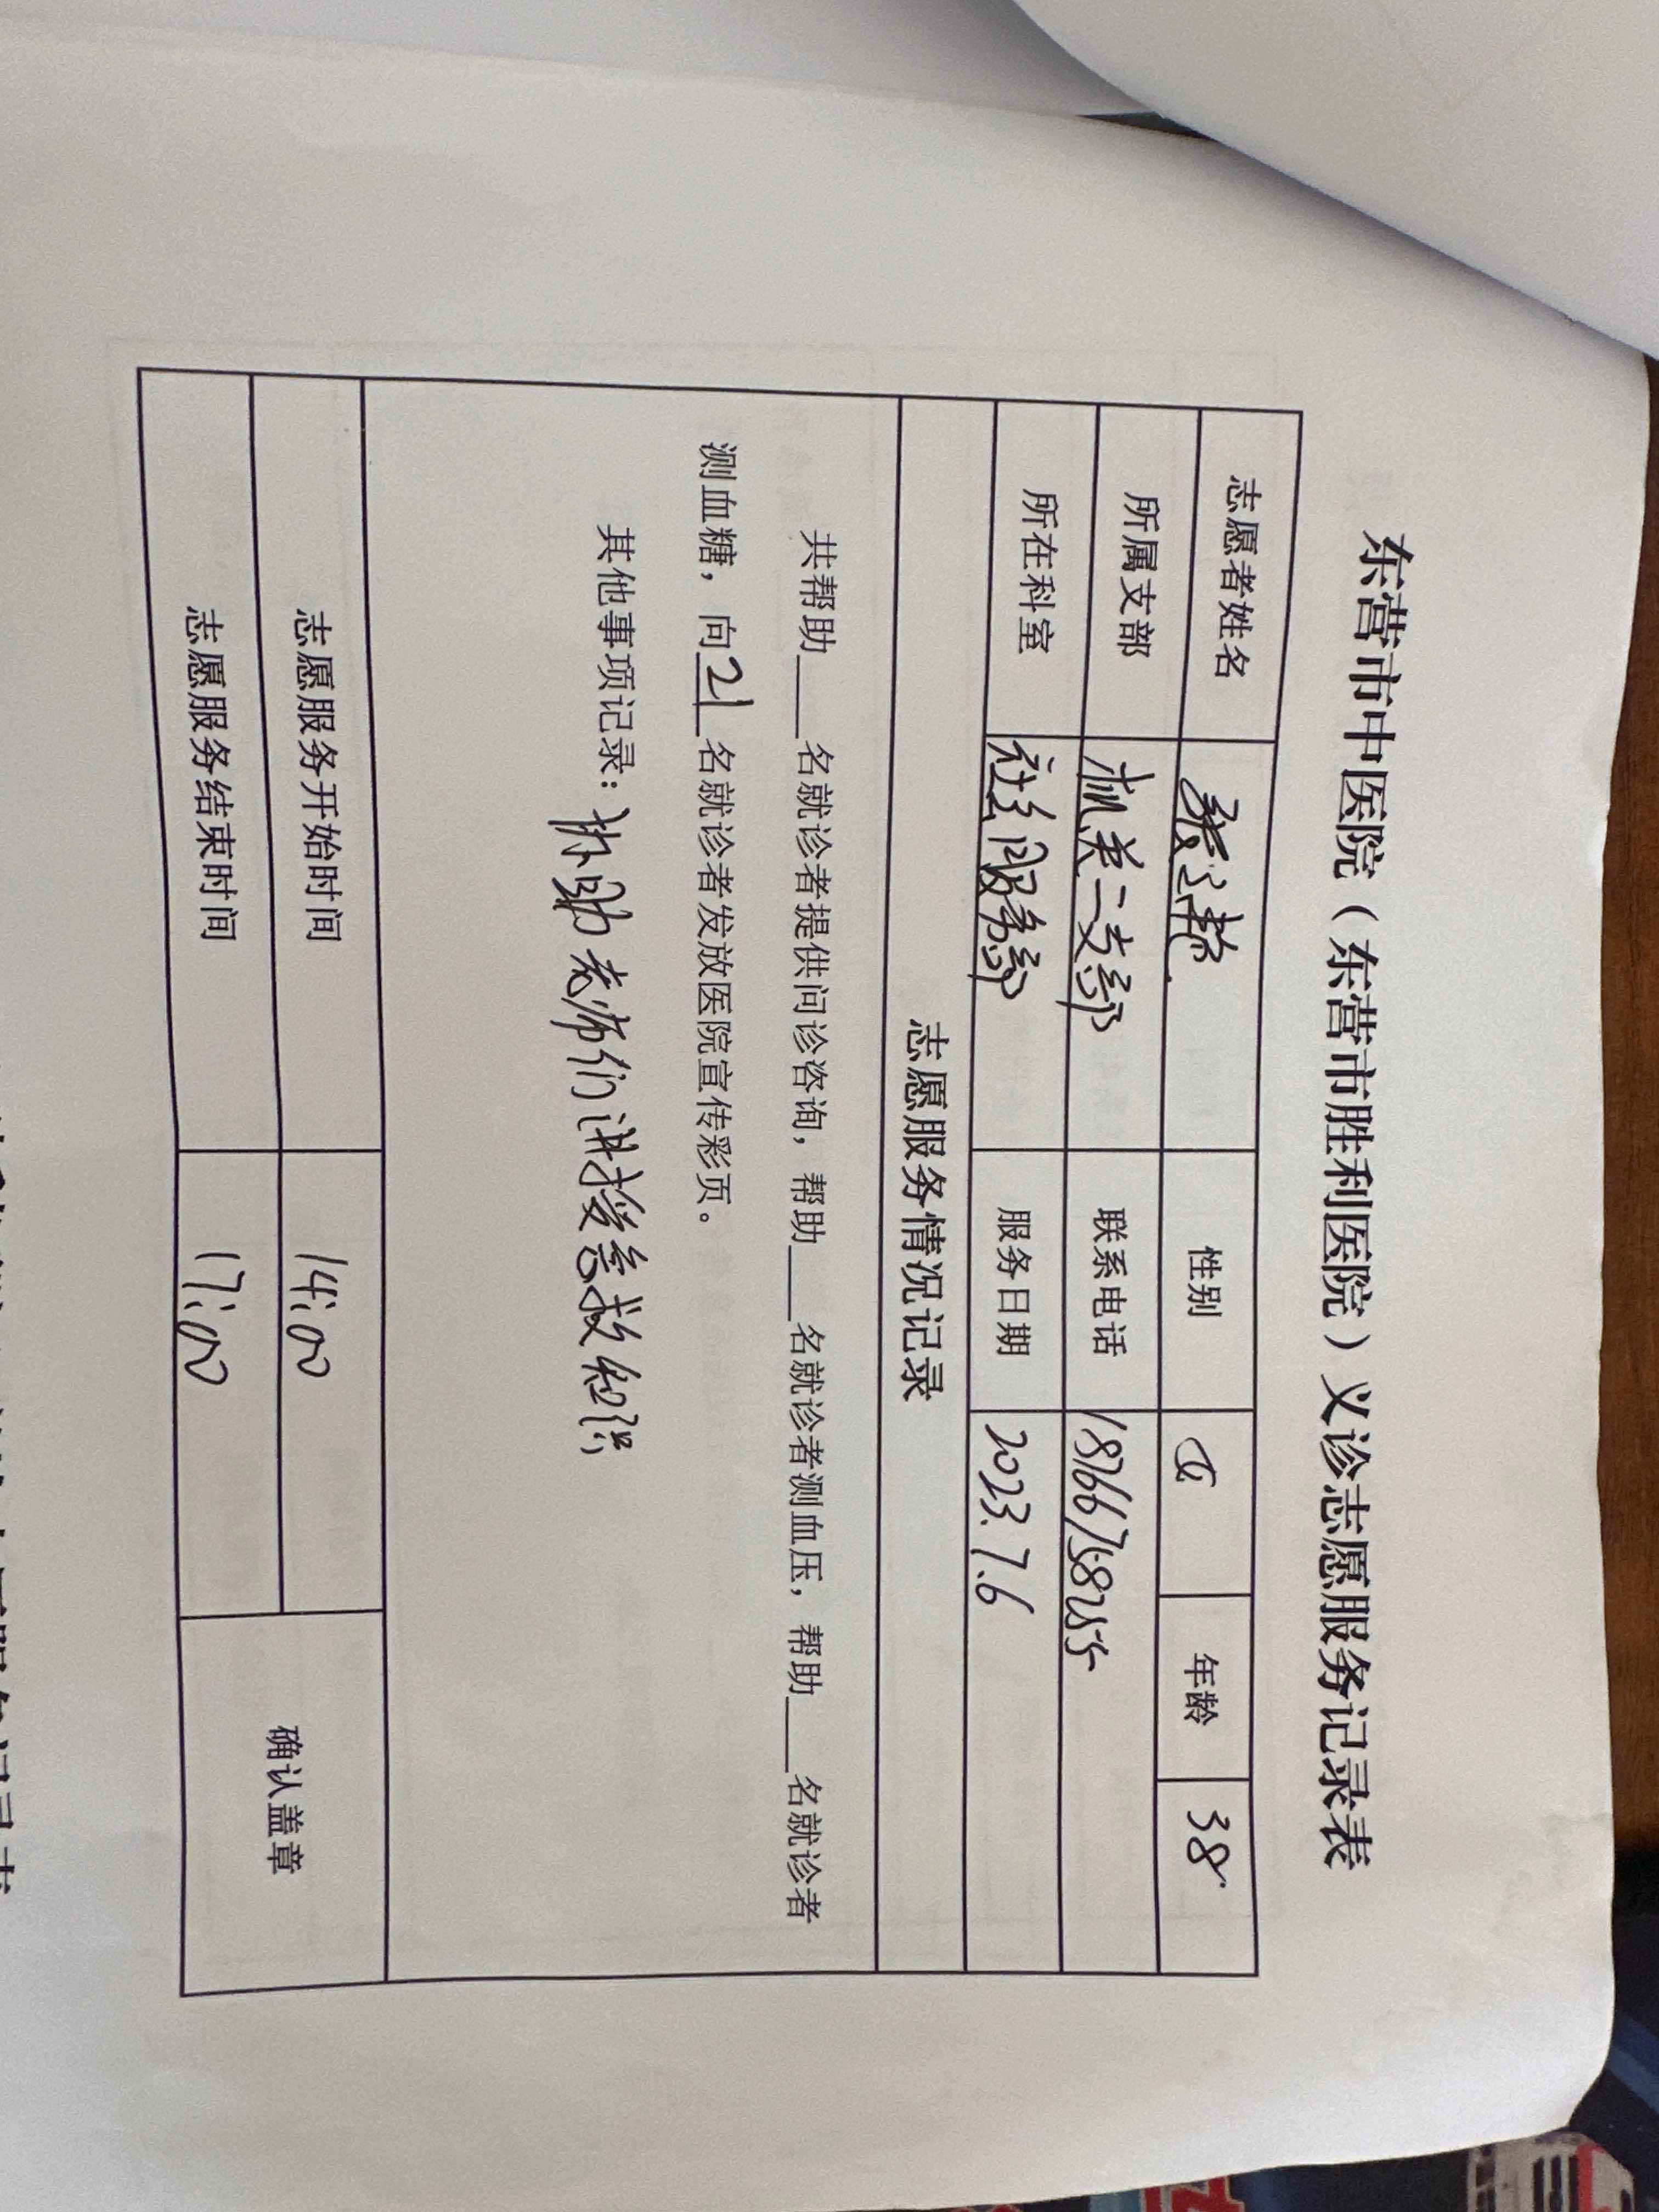 东营市中医院（东营市胜利医院）义诊志愿服务记录表
志愿者姓名 性别 女 年龄 38
所属支部 机关二支部 联系电话 18766758255
所在科室 社会服务部 服务日期 2023.7.6
志愿服务情况记录
共帮助___名就诊者提供问诊咨询，帮助___名就诊者测血压，帮助___名就诊者
测血糖，向21名就诊者发放医院宣传彩页。
其他事项记录：协助老师们讲授急救知识
志愿服务开始时间 14:00
志愿服务结束时间 17:00
确认盖章